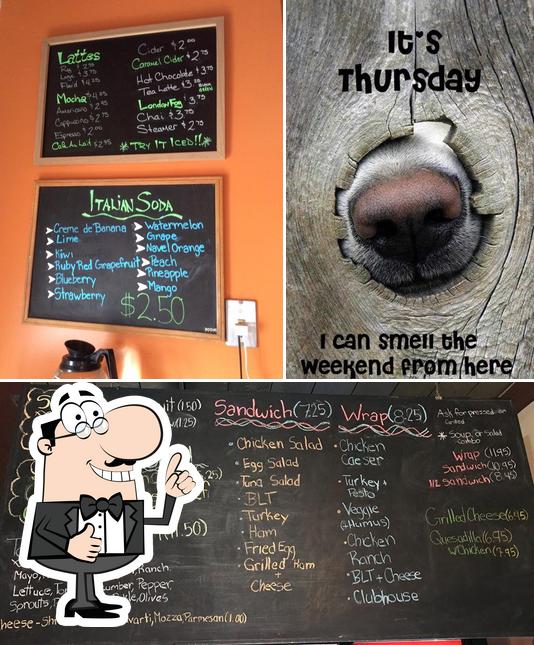 Lattes
Cider $2.00
Caramel Cider $2.75
Hot Chocolate $3.75
Tea Latte $3.20
Mocha $4.25
London Fog $3.75
Americano $2
Chai $3.75
Cappuccino $3.75
Steamer $2.75
Espresso $2.00
Cafe Au Lait $2.95
*TRY IT ICED!!*
ITALIAN SODA
Creme de Banana
Lime
Kiwi
Ruby Red Grapefruit
Blueberry
Strawberry
Watermelon
Grape
Navel Orange
Peach
Pineapple
Mango
$2.50
It's
Thursday
I can smell the
weekend from here
Sandwich (7.25)
• Chicken Salad
• Egg Salad
• Tuna Salad
• BLT
• Turkey
• Ham
• Fried Egg
• Grilled Ham
+
Cheese
Wrap (8.25)
• Chicken
Caeser
• Turkey +
Pesto
• Veggie
(+Humus)
• Chicken
Ranch
• BLT + Cheese
• Clubhouse
Ask for pressed or
Grilled
* Soup or Salad
Combo
Wrap (11.95)
Sandwich (10.95)
1/2 Sandwich (8.45)
Grilled Cheese (6.95)
Quesadilla (6.95)
w/Chicken (7.95)
(1.50)
Ranch
Mayo,
Lettuce, cumber, Pepper
Sprouts, Olives
varti, Mozza, Parmesan (1.00)